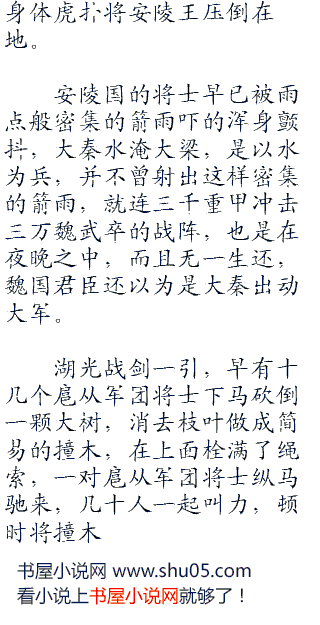 身体虎扑将安陵王压倒在
地。
安陵国的将士早已被雨
点般密集的箭雨吓的浑身颤
抖，大秦水淹大梁，是以水
为兵，并不曾射出这样密集
的箭雨，就连三千重甲冲击
三万魏武卒的战阵，也是在
夜晚之中，而且无一生还，
魏国君臣还以为是大秦出动
大军。
湖光战剑一引，早有十
几个扈从军团将士下马砍倒
一颗大树，消去枝叶做成简
易的撞木，在上面栓满了绳
索，一对扈从军团将士纵马
驰来，几十人一起叫力，顿
时将撞木
书屋小说网 www.shu05.com
看小说上书屋小说网就够了！